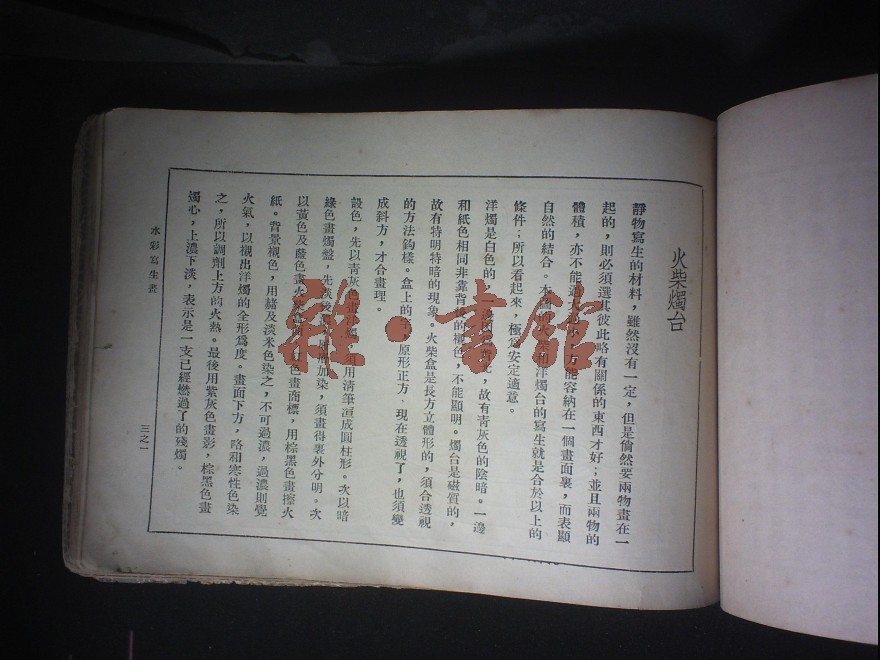 火柴燭台
靜物寫生的材料，雖然沒有一定，但是倘然要兩物畫在一
起的，則必須選其彼此略有關係的東西才好；並且兩物的
體積，亦不能過能容納在一個畫面裏，而表顯
自然的結合。本洋燭台的寫生就是合於以上的
條件；所以看起來，極爲安定適意。
洋燭是白色的，故有青灰色的陰暗。一邊
和紙色相同非靠背後的襯色，不能顯明。燭台是磁質的，
故有特明特暗的現象。火柴盒是長方立體形的，須合透視
的方法鈎樣。盒上的字，原形正方，現在透視了，也須變
成斜方，才合畫理。
設色，先以青灰色畫用清筆渲成圓柱形。次以暗
綠色畫燭盤，先淡後加染，須畫得裏外分明。次
以黃色及藍色畫火柴盒面，紅色畫面標，用棕黑色畫擦火
紙。背景襯色，用赭及淡米色染之，不可過濃，過濃則覺
火氣，以襯出洋燭的全形爲度。畫面下方，略和寒性色染
之，所以調劑上方的火熱。最後用紫灰色畫影，棕黑色畫
燭心，上濃下淡，表示是一支已經燃過了的殘燭。
水彩寫生畫
三之一
雜·書館